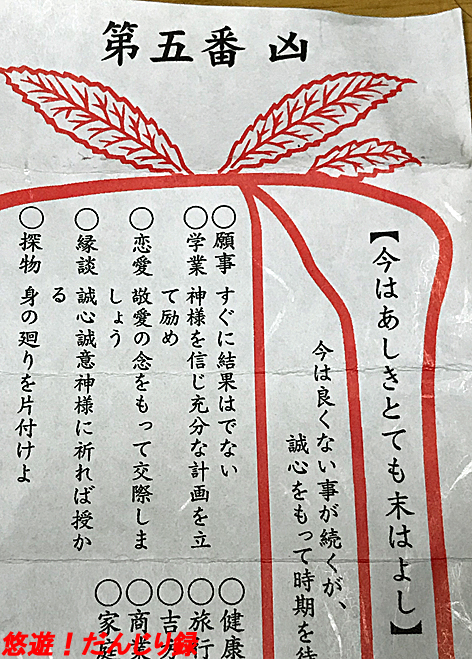 第五番 凶
【今はあしきとても末はよし】
今は良くない事が続くが、
誠心をもって時期を待
○願事 すぐに結果はでない
○学業 神様を信じ充分な計画を立
て励め
○恋愛 敬愛の念をもって交際しま
しょう
○縁談 誠心誠意神様に祈れば授か
る
○探物 身の廻りを片付けよ
○健康
○旅行
○吉方
○商業
○家庭
悠遊！だんじり録